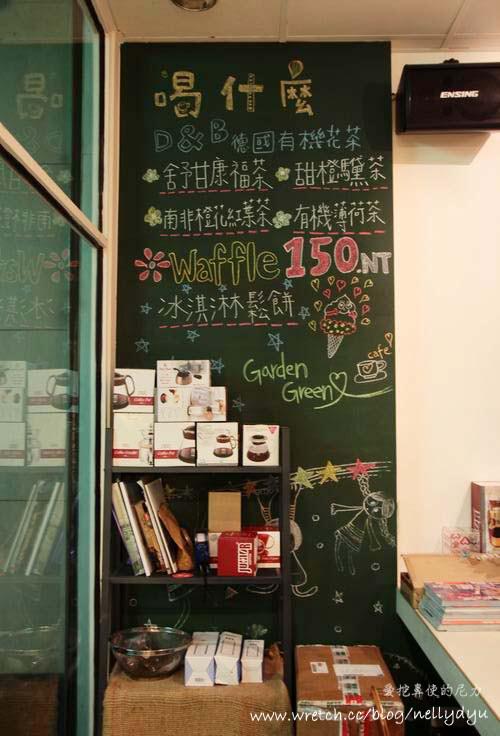 喝什麼
D&B 德國有機花茶
舒予甘康福茶 甜橙驥茶
南非橙花紅葉茶 有機薄荷茶
Waffle 150.NT
冰淇淋鬆餅
Garden
Green
cafe
ENSING
愛挖鼻使的尼力
www.wretch.cc/blog/nellydyu